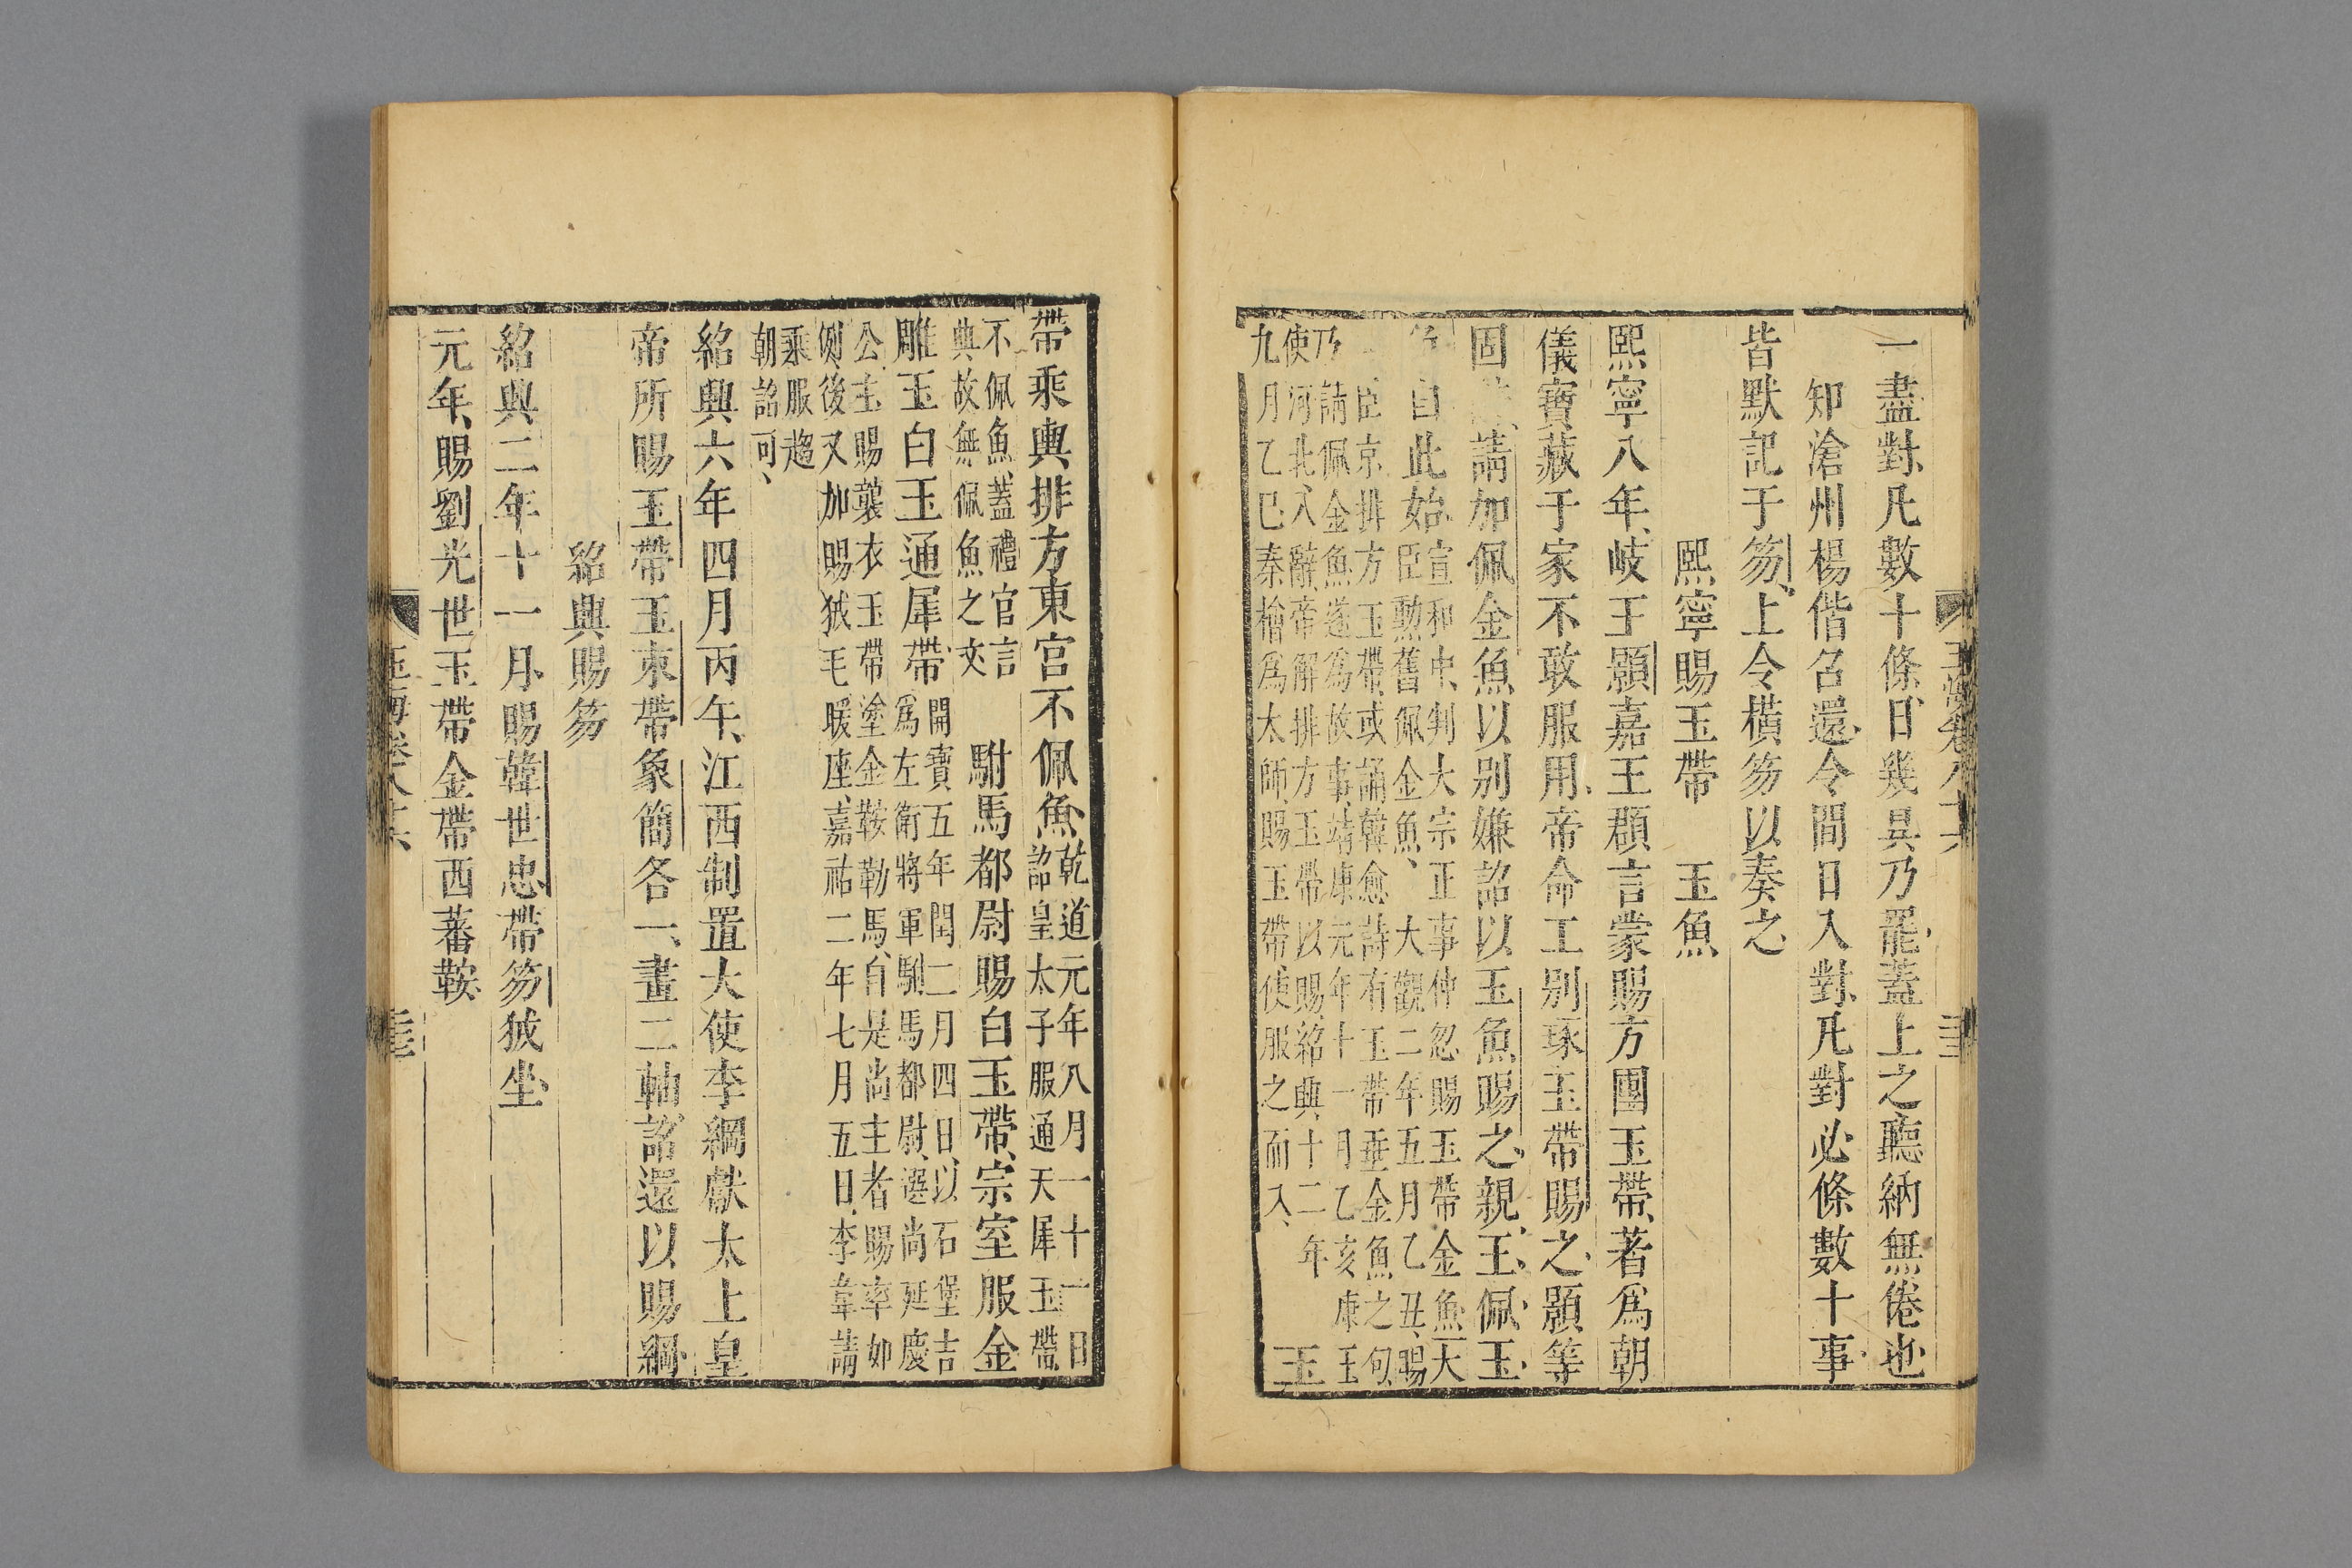 一盡對凡數十條日幾昃乃罷蓋上之聽納無倦也
知滄州楊偕召還令間日入對凡對必條數十事
皆默記于笏上令橫笏以奏之
熙寧賜玉帶 玉魚
熙寧八年岐王顥嘉王頵言蒙賜方團玉帶著爲朝
儀寶藏于家不敢服用帝命工別琢玉帶賜之顥等
固 請加佩金魚以別嫌詔以玉魚賜之親王佩玉
自此始
宣和中判大宗正事仲忽賜玉帶金魚大
臣勲舊佩金魚 大觀二年五月乙丑賜
臣京排方玉帶或誦韓愈詩有玉帶垂金魚之句
乃請佩金魚遂爲故事靖康元年十一月乙亥康王
使河北入辭帝解排方玉帶以賜紹興十二年
九月乙巳秦檜爲太師賜玉帶使服之而入
玉
玉海卷八十六
帶乘輿排方東宮不佩魚
乾道元年八月一十一日
詔皇太子服通天犀玉帶
不佩魚蓋禮官言
典故無佩魚之文
駙馬都尉賜白玉帶宗室服金
雕玉白玉通犀帶
開寶五年閏二月四日以石堡吉
爲左衛將軍駙馬都尉選尚延慶
公主賜襲衣玉帶塗金鞍勒馬自是尚主者賜率如
側後又加賜狨毛暖座嘉祐二年七月五日李葦請
乘服趨
朝詔可
紹興六年四月丙午江西制置大使李綱獻太上皇
帝所賜玉帶玉束帶象簡各一畫二軸詔還以賜綱
紹興賜笏
紹興二年十一月賜韓世忠帶笏狨坐
元年賜劉光世玉帶金帶西蕃鞍
玉海卷八十六